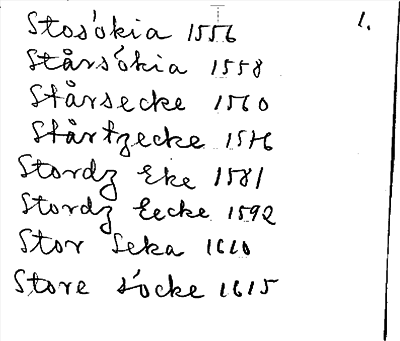 Stosókia 1556 1.
Stårsókia 1558
Stårsecke 1560
Stårtzecke 1576
Stordz Eke 1581
Stordz Eecke 1592
Stor Seka 1610
Store söcke 1615